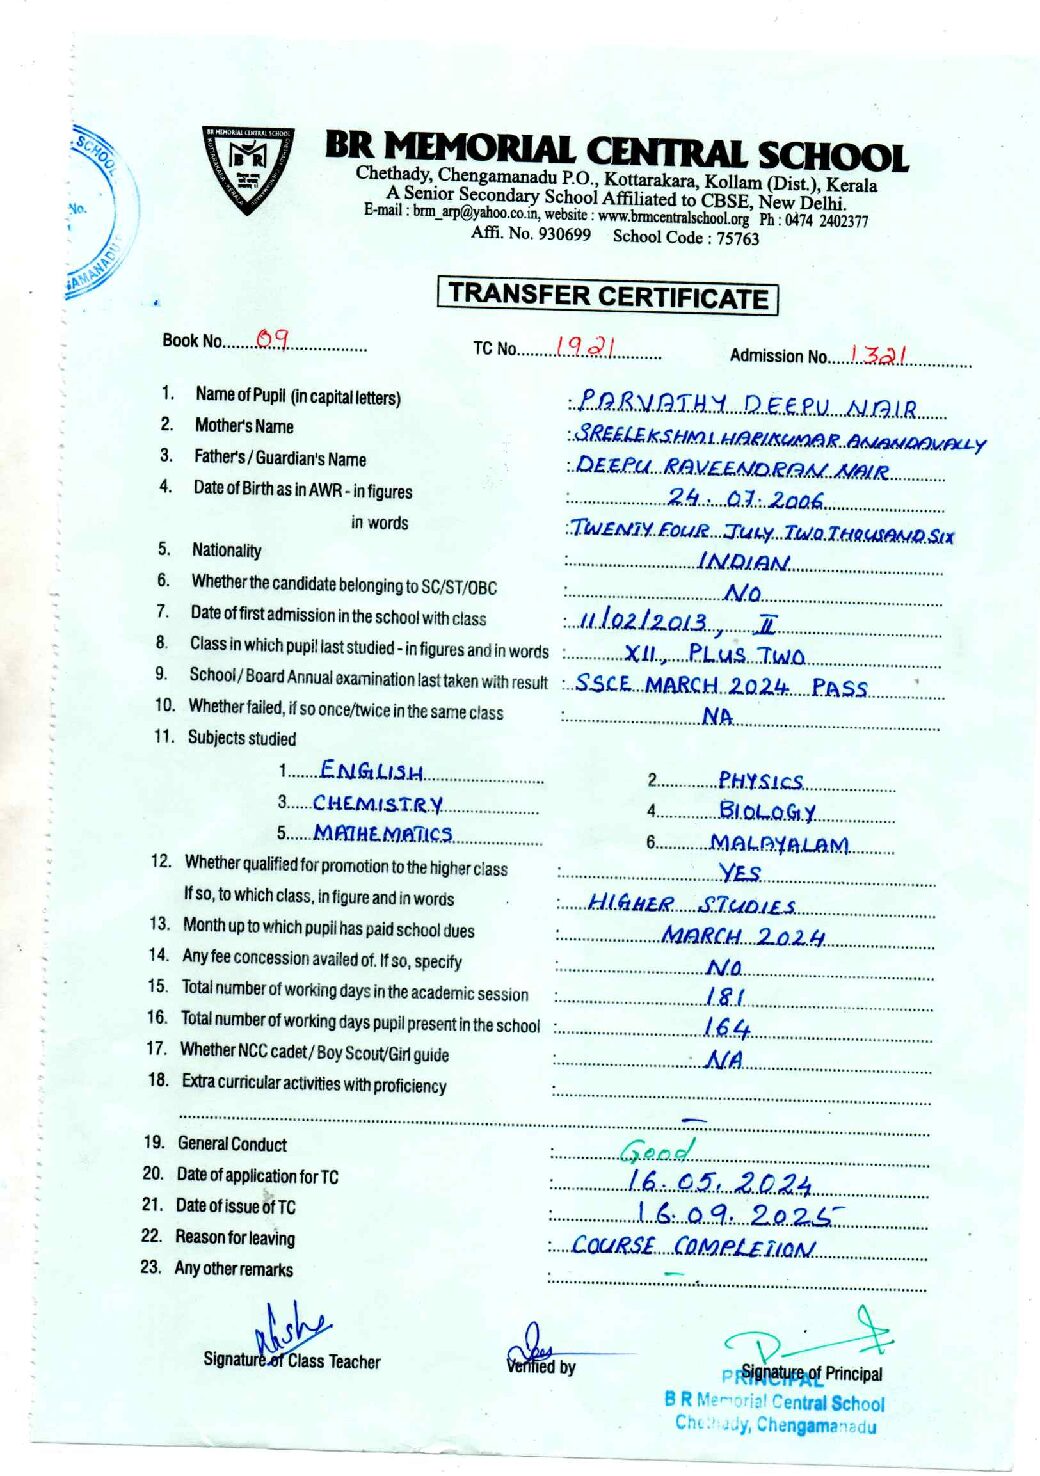 SCHOOL
No.
GAMANADU
BR MEMORIAL CENTRAL SCHOOL
BR
BR MEMORIAL CENTRAL SCHOOL
Chethady, Chengamanadu P.O., Kottarakara, Kollam (Dist.), Kerala
A Senior Secondary School Affiliated to CBSE, New Delhi.
E-mail : brm_arp@yahoo.co.in, website : www.brmcentralschool.org Ph : 0474 2402377
Affi. No. 930699 School Code : 75763
TRANSFER CERTIFICATE
Book No. 09 TC No. 1921 Admission No. 1321
1. Name of Pupil (in capital letters) : PARVATHY DEEPU NAIR
2. Mother's Name : SREELEKSHMI HARIKUMAR ANANDAVALLY
3. Father's / Guardian's Name : DEEPU RAVEENDRAN NAIR
4. Date of Birth as in AWR - in figures : 24. 07. 2006
in words : TWENTY FOUR JULY TWO THOUSAND SIX
5. Nationality : INDIAN
6. Whether the candidate belonging to SC/ST/OBC : NO
7. Date of first admission in the school with class : 11/02/2013, II
8. Class in which pupil last studied - in figures and in words : XII, PLUS TWO
9. School / Board Annual examination last taken with result : SSCE MARCH 2024 PASS
10. Whether failed, if so once/twice in the same class : NA
11. Subjects studied
1 ENGLISH 2 PHYSICS
3 CHEMISTRY 4 BIOLOGY
5 MATHEMATICS 6 MALAYALAM
12. Whether qualified for promotion to the higher class : YES
If so, to which class, in figure and in words : HIGHER STUDIES
13. Month up to which pupil has paid school dues : MARCH 2024
14. Any fee concession availed of. If so, specify : NO
15. Total number of working days in the academic session : 181
16. Total number of working days pupil present in the school : 164
17. Whether NCC cadet / Boy Scout/Girl guide : NA
18. Extra curricular activities with proficiency :
—
19. General Conduct : Good
20. Date of application for TC : 16. 05. 2024
21. Date of issue of TC : 16. 09. 2025
22. Reason for leaving : COURSE COMPLETION
23. Any other remarks : —
Signature of Class Teacher Verified by Signature of Principal
PRINCIPAL
B R Memorial Central School
Chethady, Chengamanadu